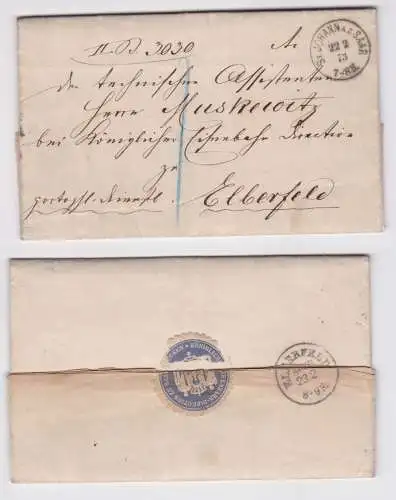 II. B. 3030. An
ST. JOHANN A.D. SAAR
22 2
73
7-8N.
den technischen Assistenten
Herrn Muskewitz
bei Königlicher Eisenbahn Direction
zu
portopfl. Dienstl. Elberfeld
ELBERFELD
23 2
8-9N.